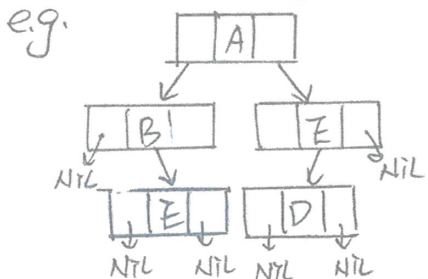 e.g.
A
B E
NiL NiL
E D
NiL NiL NiL NiL